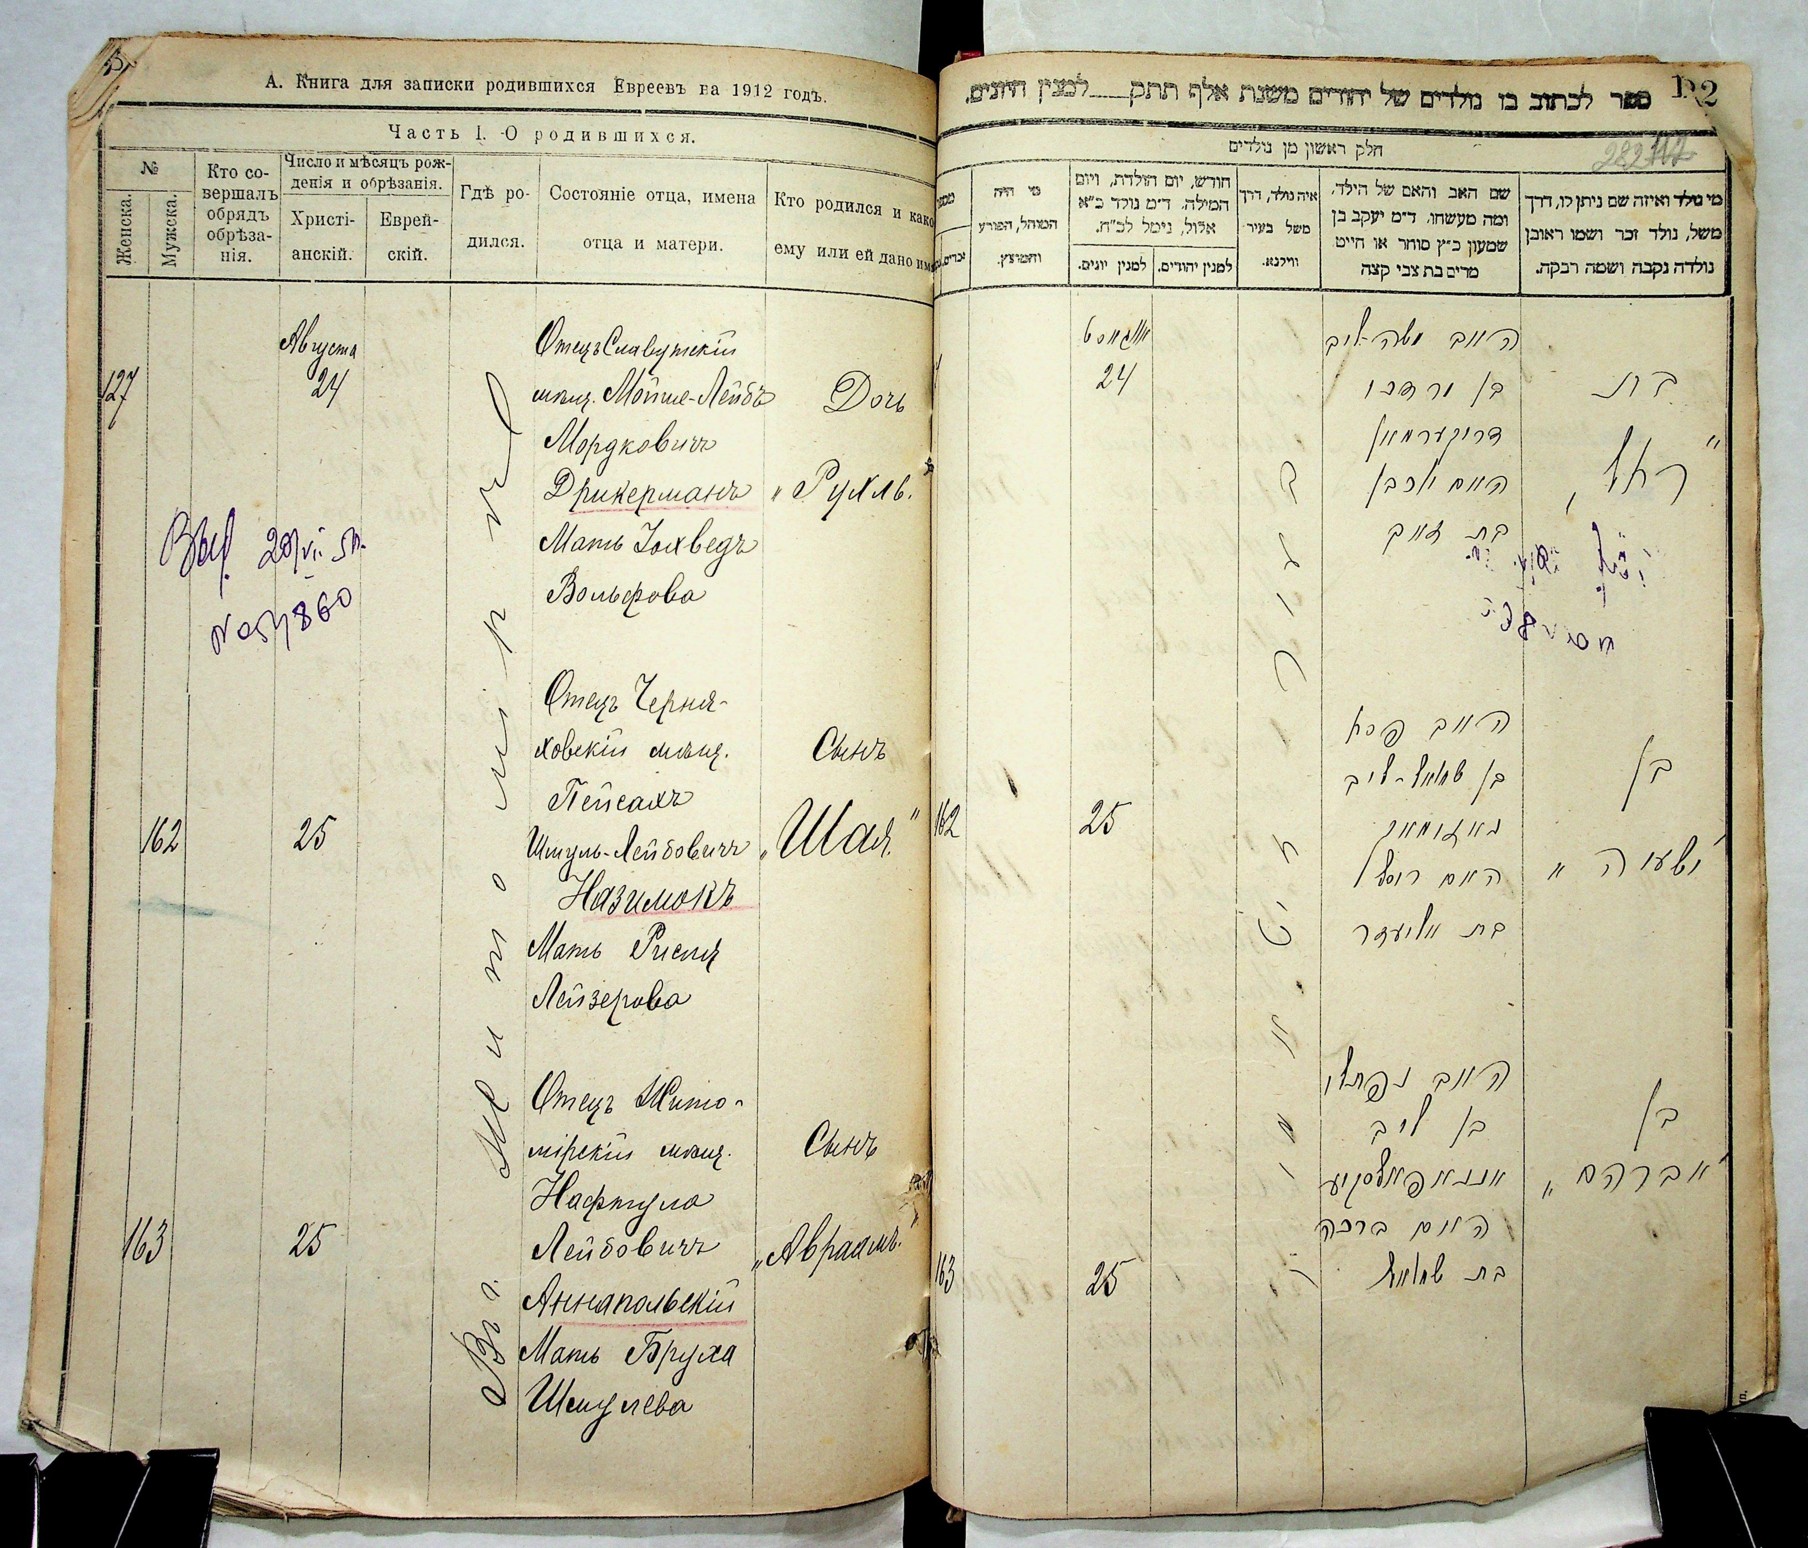 А. Книга для записки родившихся Евреевъ на 1912 годъ.
Часть I. О родившихся.
№
Женска.
Мужска.
Кто со-
вершалъ
обрядъ
обрѣза-
нія.
Число и мѣсяцъ рож-
денія и обрѣзанія.
Христі-
анскій.
Еврей-
скій.
Гдѣ ро-
дился.
Состояніе отца, имена
отца и матери.
Кто родился и како
ему или ей дано имя
127
Августа
24
Отецъ Славутскій
мѣщ. Мойше-Лейбъ
Мордковичъ
Дрикерманъ
Мать Іохведъ
Вольфова
Дочь
„Рухль.“
20/VII
№ 860
162
25
Отецъ Черня-
ховскій мѣщ.
Пейсахъ
Шмуль-Лейбовичъ
Назимокъ
Мать Рисля
Лейзерова
Сынъ
„Шая.“
163
25
Отецъ Жито-
мірскій мѣщ.
Нафтула
Лейбовичъ
Аннапольскій
Мать Бруха
Шмулева
Сынъ
„Авраамъ.“
Въ г. Житомирѣ
ספר לכתוב בו נולדים של יהודים משנת אלף תתק למנין היונים.
282
חלק ראשון מן נולדים
מי היה
המוהל, הפורע
והמוצץ.
חודש, יום הולדת, ויום
המילה. ד״מ נולד כ״א
אלול, נימל לכ״ח.
למנין יונים.
למנין יהודים.
איה נולד, דרך
משל בעיר
ווילנא.
שם האב והאם של הילד,
ומה מעשהו. ד״מ יעקב בן
שמעון כ״ץ סוחר או חייט
מרים בת צבי קצה
מי נולד ואיזה שם ניתן לו, דרך
משל, נולד זכר ושמו ראובן
נולדה נקבה ושמה רבקה.
אווגוסט
24
האב משה-ליב
בן מרדכי
דריקערמאן
האם יוכבד
בת זאב
בת
„רחל“
162
25
האב פסח
בן שמואל-ליב
נאזימאק
האם ריסיל
בת אליעזר
בן
„ישעיה“
163
25
האב נפתלי
בן ליב
אננאפאלסקיע
האם ברכה
בת שמואל
בן
„אברהם“